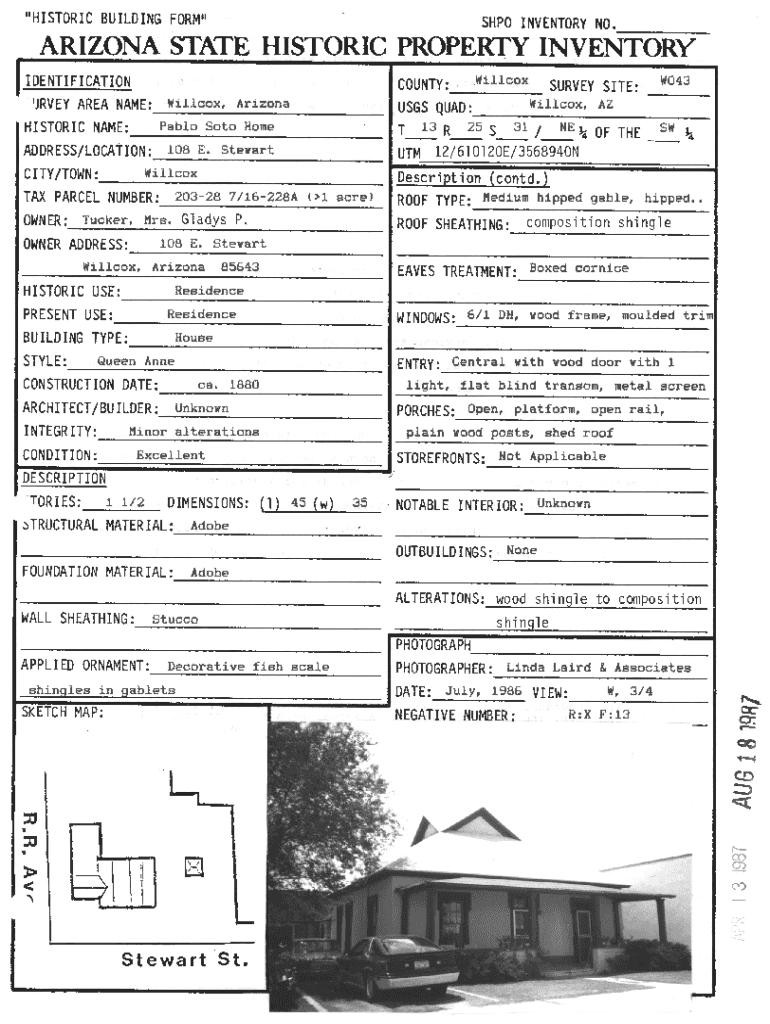 "HISTORIC BUILDING FORM"
SHPO INVENTORY NO.
ARIZONA STATE HISTORIC PROPERTY INVENTORY
IDENTIFICATION
URVEY AREA NAME: Willcox, Arizona
HISTORIC NAME: Pablo Soto Home
ADDRESS/LOCATION: 108 E. Stewart
CITY/TOWN: Willcox
TAX PARCEL NUMBER: 203-28 7/16-228A (>1 acre)
OWNER: Tucker, Mrs. Gladys P.
OWNER ADDRESS: 108 E. Stewart
Willcox, Arizona 85643
HISTORIC USE: Residence
PRESENT USE: Residence
BUILDING TYPE: House
STYLE: Queen Anne
CONSTRUCTION DATE: ca. 1880
ARCHITECT/BUILDER: Unknown
INTEGRITY: Minor alterations
CONDITION: Excellent
DESCRIPTION
TORIES: 1 1/2 DIMENSIONS: (l) 45 (w) 35
STRUCTURAL MATERIAL: Adobe
FOUNDATION MATERIAL: Adobe
WALL SHEATHING: Stucco
APPLIED ORNAMENT: Decorative fish scale
shingles in gablets
COUNTY: Willcox SURVEY SITE: W043
USGS QUAD: Willcox, AZ
T 13 R 25 S 31 / NE ¼ OF THE SW ¼
UTM 12/610120E/3568940N
Description (contd.)
ROOF TYPE: Medium hipped gable, hipped..
ROOF SHEATHING: composition shingle
EAVES TREATMENT: Boxed cornice
WINDOWS: 6/1 DH, wood frame, moulded trim
ENTRY: Central with wood door with 1
light, flat blind transom, metal screen
PORCHES: Open, platform, open rail,
plain wood posts, shed roof
STOREFRONTS: Not Applicable
NOTABLE INTERIOR: Unknown
OUTBUILDINGS: None
ALTERATIONS: wood shingle to composition
shingle
PHOTOGRAPH
PHOTOGRAPHER: Linda Laird & Associates
DATE: July, 1986 VIEW: W, 3/4
NEGATIVE NUMBER: R:X F:13
SKETCH MAP:
R.R. Av
Stewart St.
AUG 18 1987
APR 13 1987